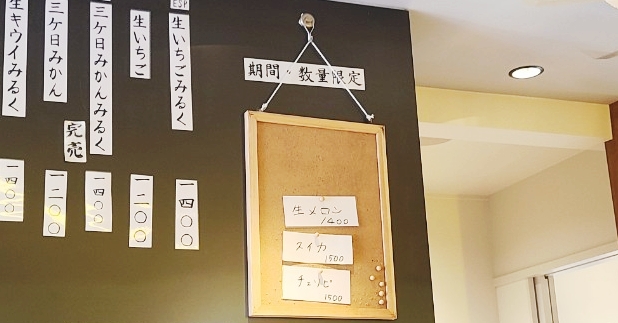 ESP
生いちごみるく
一四〇〇
生いちご
一二〇〇
三ケ日みかんみるく
完売
一四〇〇
三ケ日みかん
一二〇〇
生キウイみるく
一四〇〇
期間〃数量限定
生メロン
1400
スイカ
1500
1500